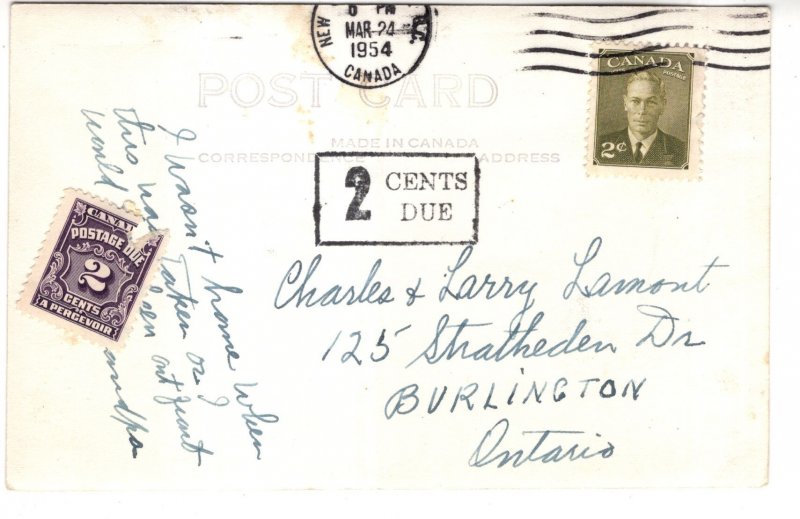 NEW
6 PM
MAR 24
1954
CANADA
CANADA
POSTAGE
2¢
POST CARD
MADE IN CANADA
CORRESPONDENCE
ADDRESS
2 CENTS
DUE
I wasn't home when
this was taken or I
would been out front
Grandpa
CANAD
POSTAGE DUE
2
CENTS
A PERCEVOIR
Charles & Larry Lamont
125 Stratheden Dr
BURLINGTON
Ontario